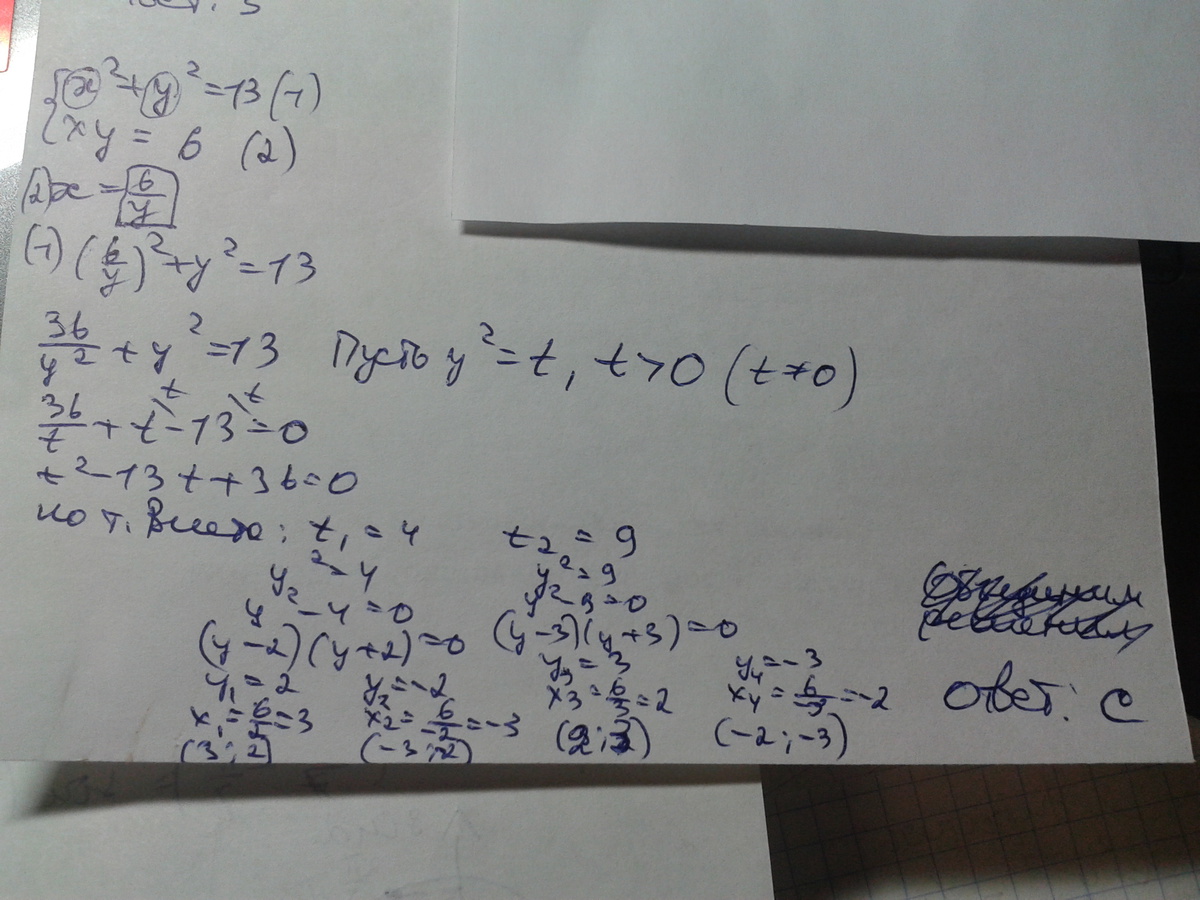 {x²+y²=13 (1)
{xy = 6 (2)
(2) x = 6/y
(1) (6/y)²+y²=13
36/y² + y²=13 Пусть y²=t, t>0 (t≠0)
36/t + t\t - 13\t = 0
t²-13t+36=0
по т. Виета: t₁ = 4 t₂ = 9
y²=4 y²=9
y²-4=0 y²-9=0
(y-2)(y+2)=0 (y-3)(y+3)=0
y₁=2 y₂=-2 y₃=3 y₄=-3
x₁=6/2=3 x₂=6/-2=-3 x₃=6/3=2 x₄=6/-3=-2
(3;2) (-3;-2) (2;3) (-2;-3)
Ответ: С